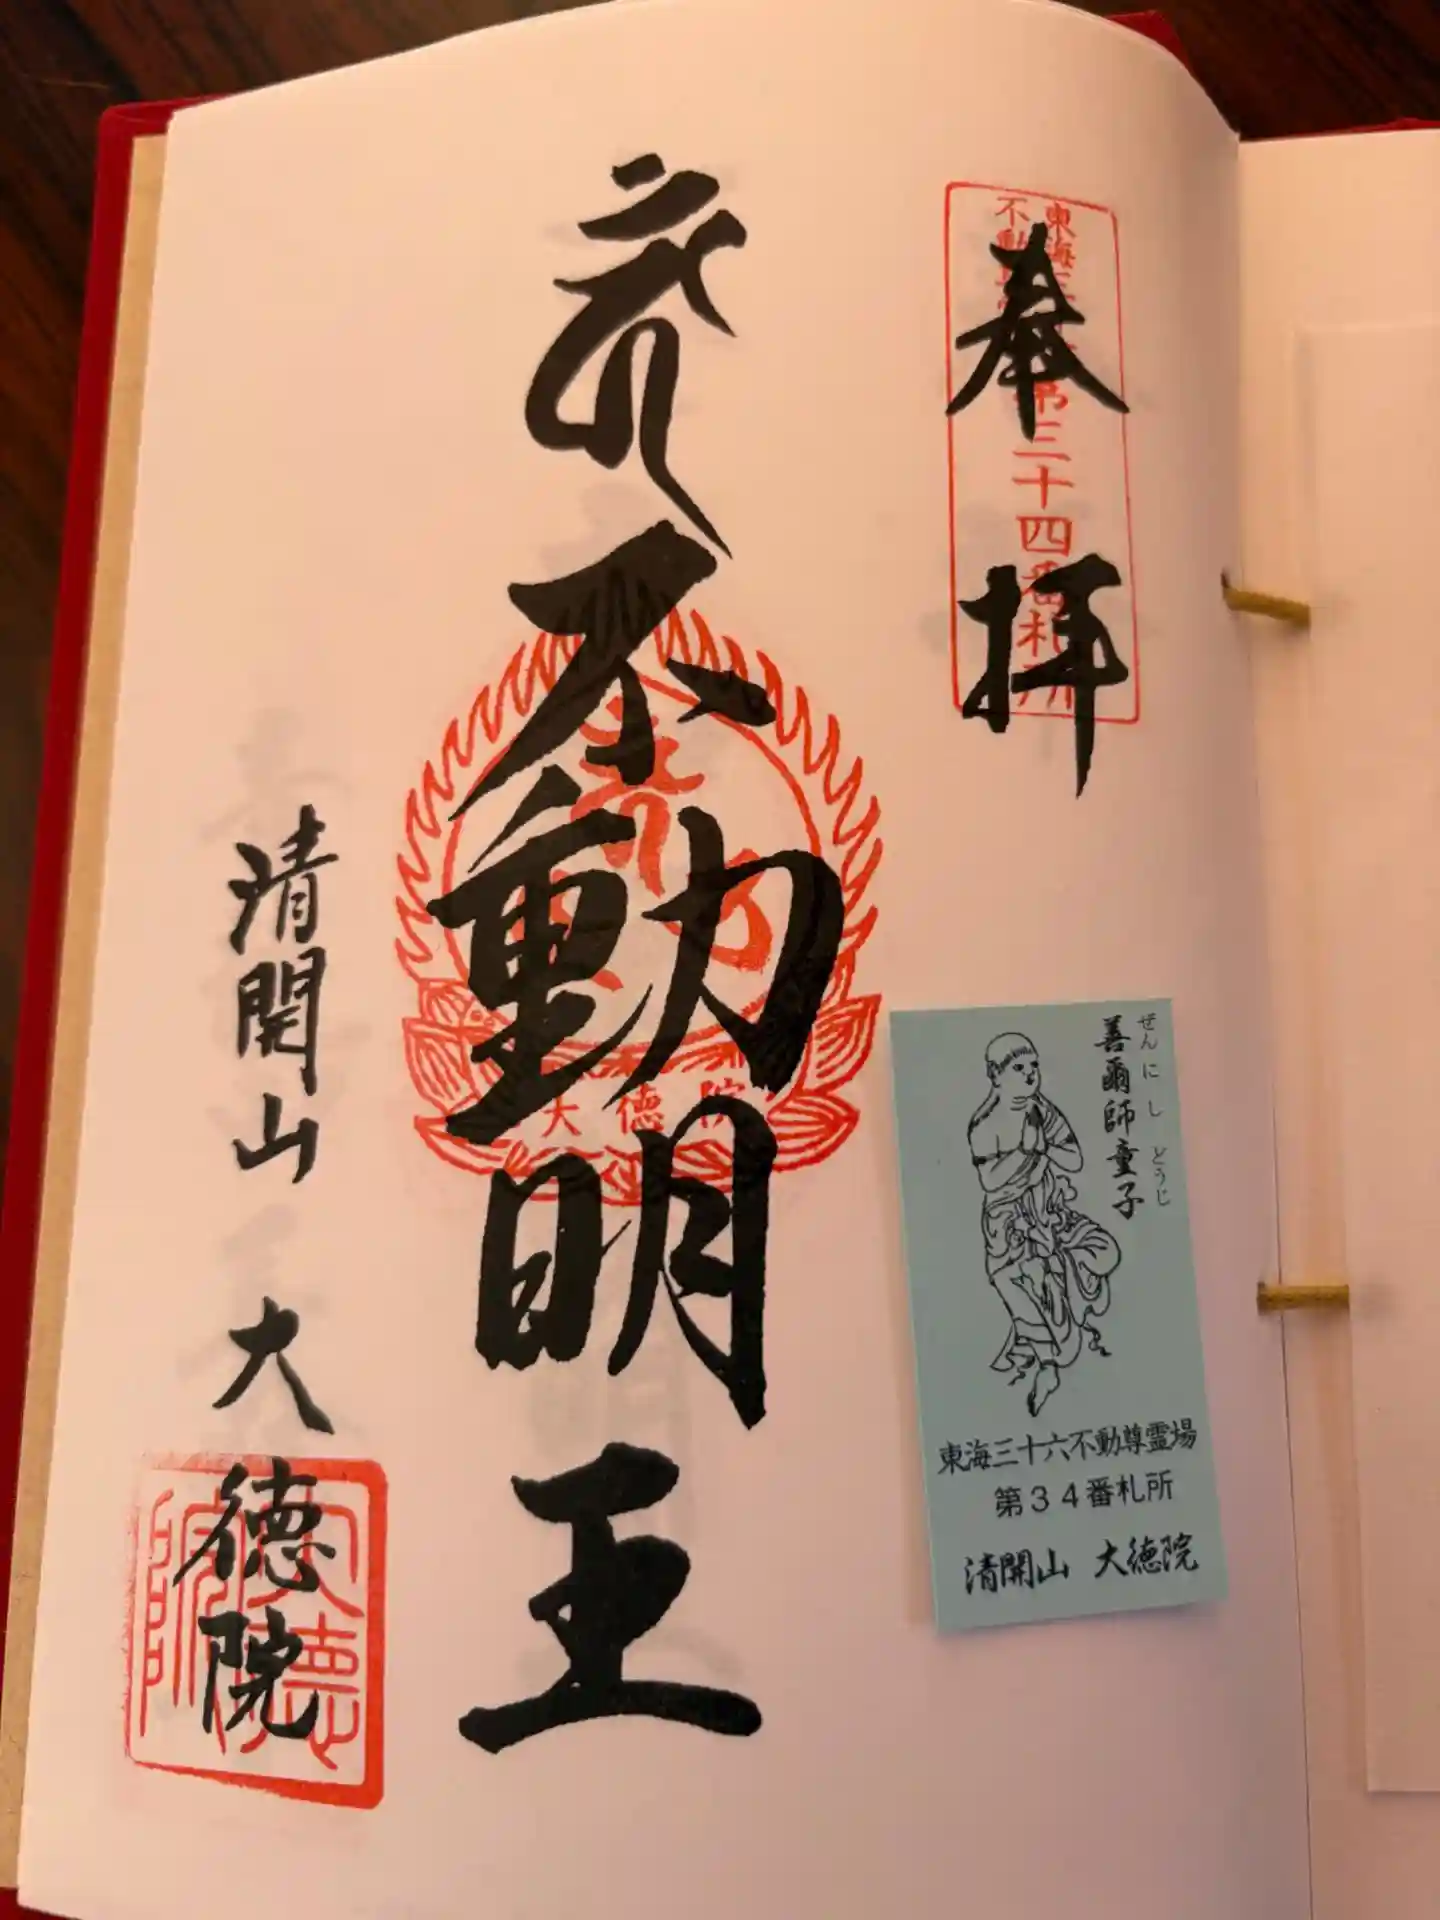 奉拝
東海三十六
不動尊霊場
第三十四番札所
不動明王
大徳院
清開山 大徳院
大徳院
善爾師童子
ぜんにし どうじ
東海三十六不動尊霊場
第34番札所
清開山 大徳院